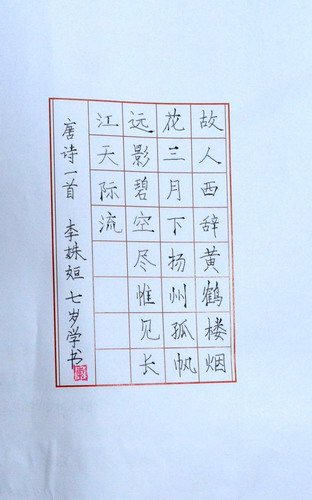 故人西辞黄鹤楼烟
花三月下扬州孤帆
远影碧空尽惟见长
江天际流
唐诗一首 李姝姮 七岁学书